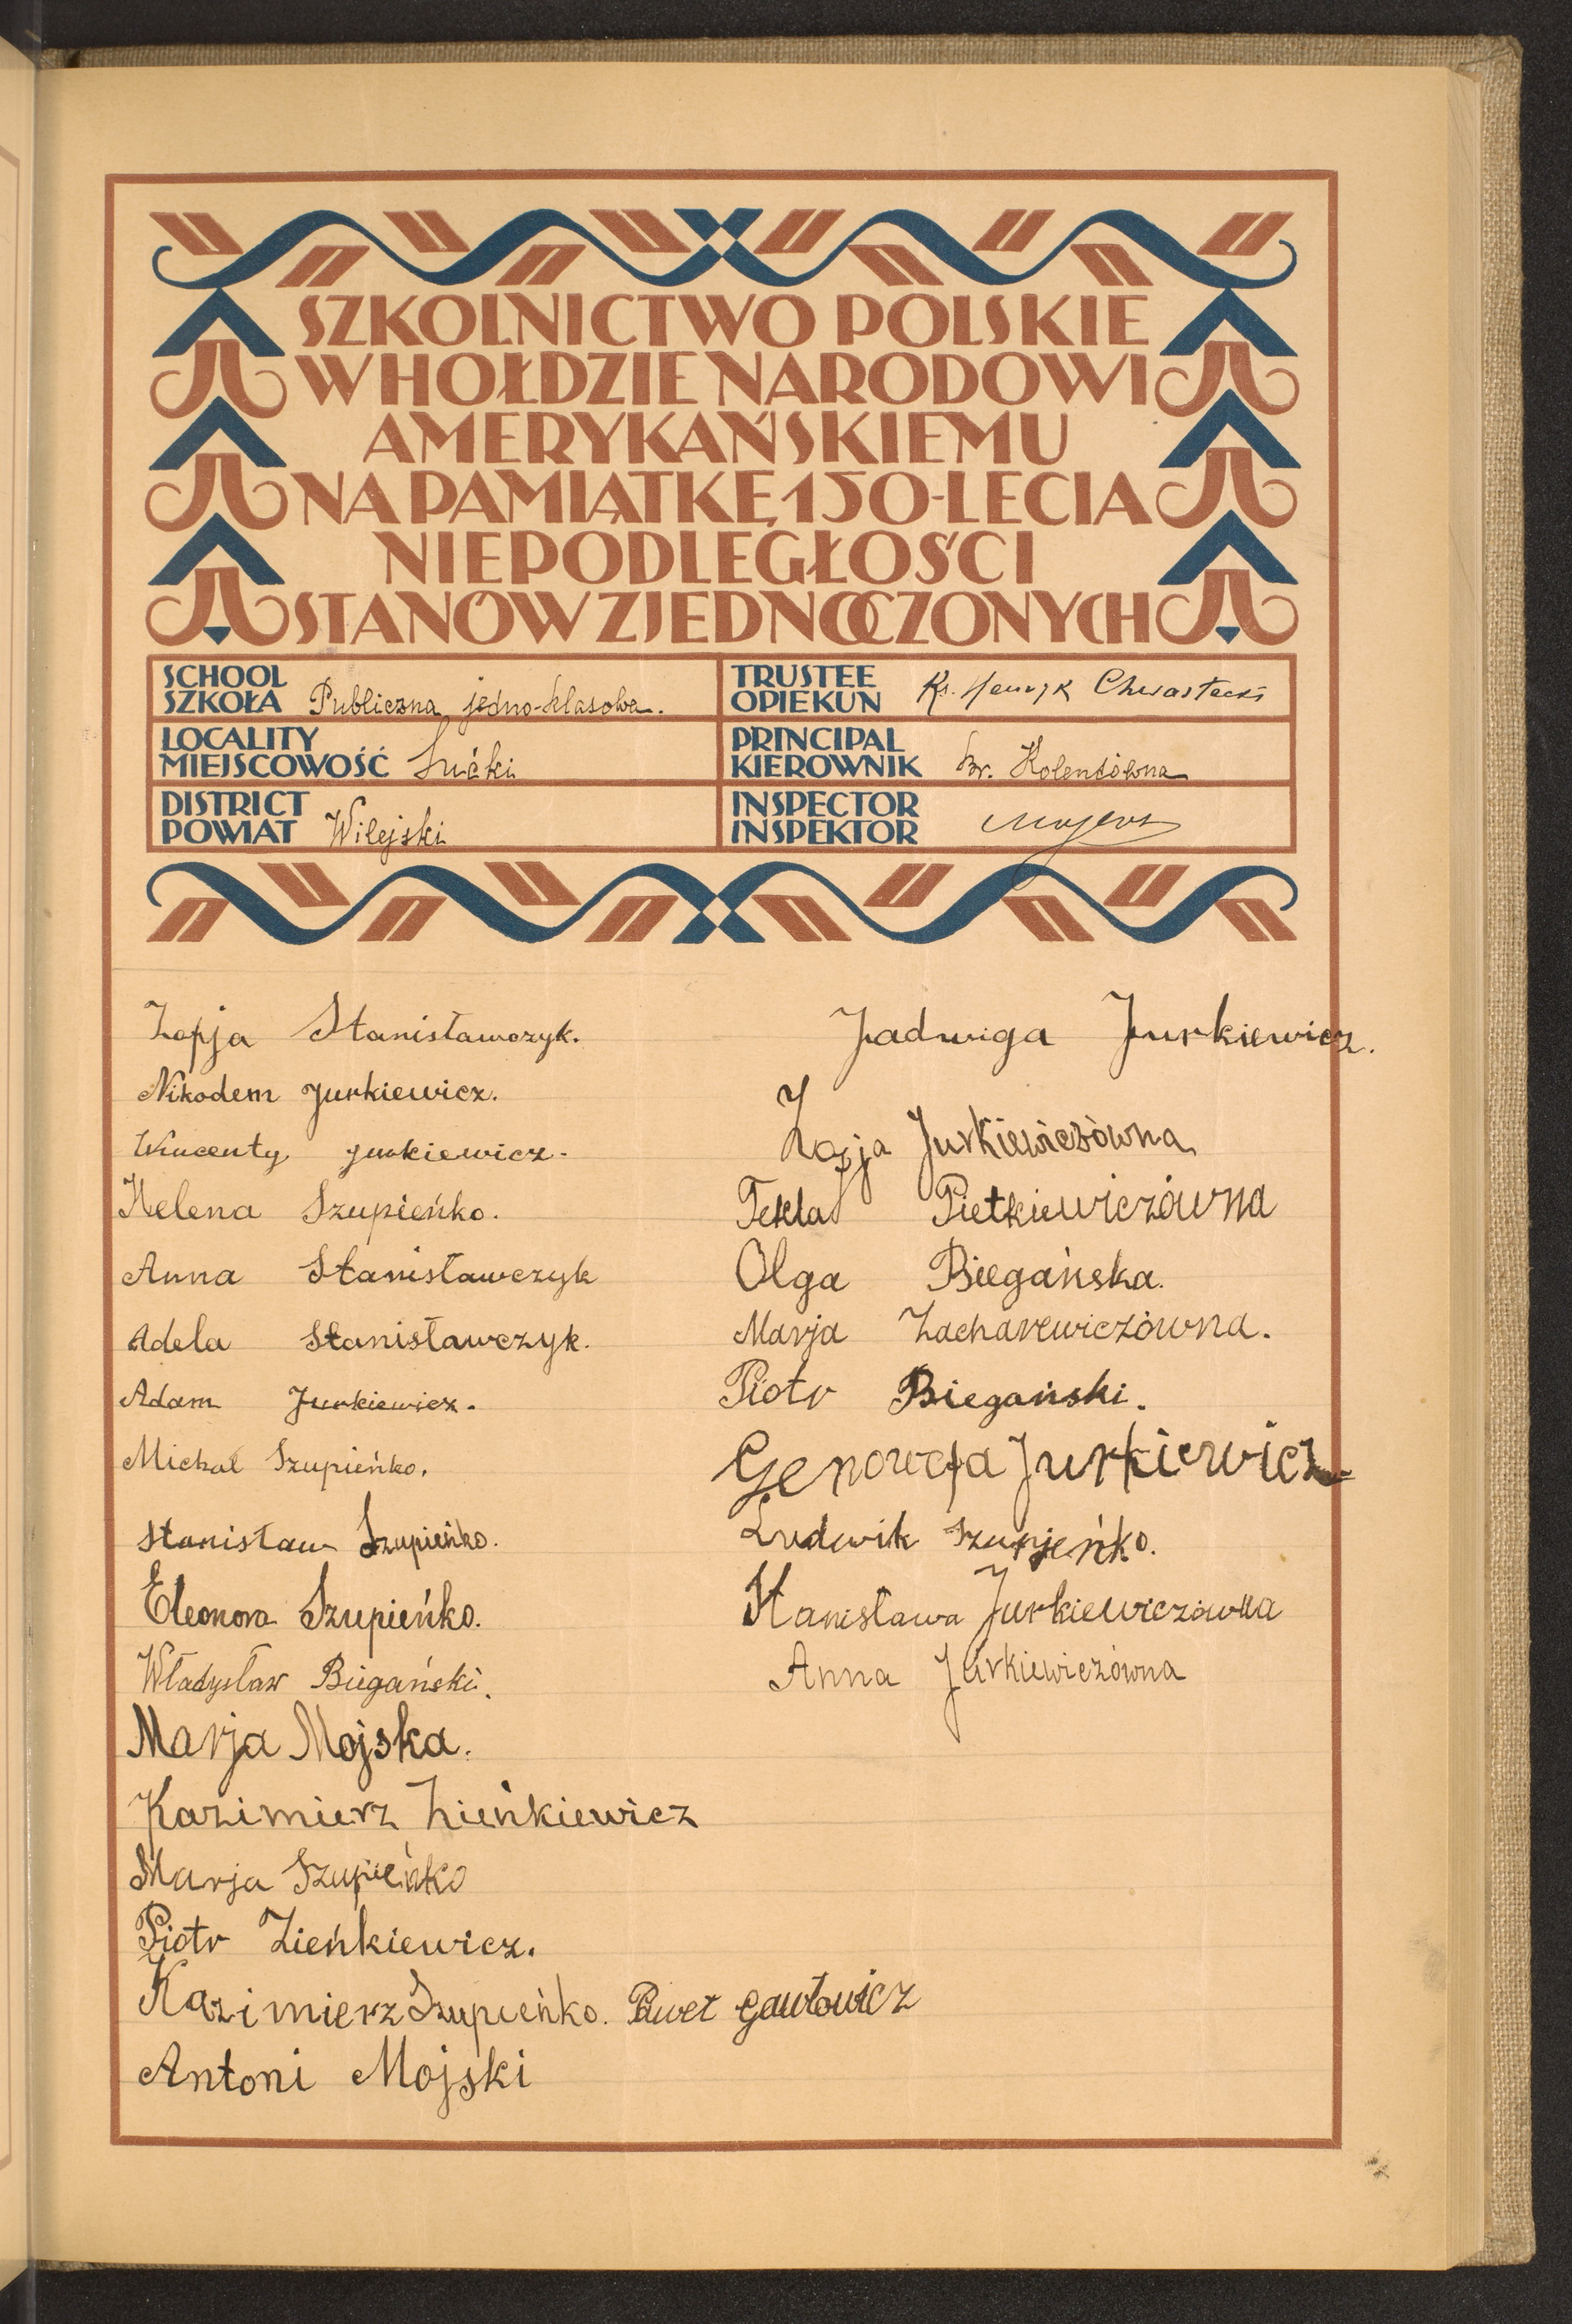 SZKOLNICTWO POLSKIE
W HOŁDZIE NARODOWI
AMERYKAŃSKIEMU
NA PAMIĄTKĘ 150-LECIA
NIEPODLEGŁOŚCI
STANÓW ZJEDNOCZONYCH
SCHOOL
SZKOŁA Publiczna jedno-klasowa.
TRUSTEE
OPIEKUN Ks. Henryk Chwastecki
LOCALITY
MIEJSCOWOŚĆ
PRINCIPAL
KIEROWNIK Br. Kolendówna
DISTRICT
POWIAT Wilejski
INSPECTOR
INSPEKTOR
Zofja Stanisławczyk.
Nikodem Jurkiewicz.
Wincenty Jurkiewicz.
Helena Szupieńko.
Anna Stanisławczyk
Adela Stanisławczyk.
Adam Jurkiewicz.
Michał Szupieńko.
Stanisław Szupieńko.
Eleonora Szupieńko.
Władysław Biegański.
Marja Mojska.
Kazimierz Zieńkiewicz
Marja Szupieńko
Piotr Zieńkiewicz.
Kazimierz Szupieńko. Paweł Gawłowicz
Antoni Mojski
Jadwiga Jurkiewicz.
Zofja Jurkiewiczówna
Tekla Pietkiewiczówna
Olga Biegańska.
Marja Zacharewiczówna.
Piotr Biegański.
Genowefa Jurkiewicz
Ludwik Szupjeńko.
Stanisława Jurkiewiczówna
Anna Jurkiewiczówna